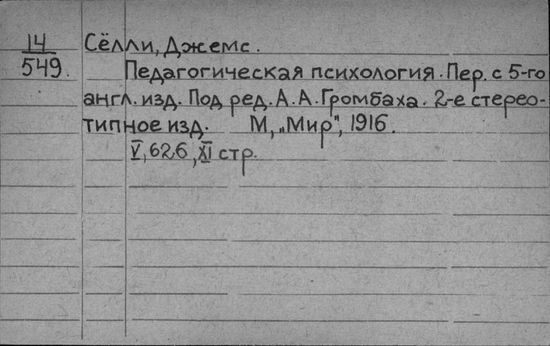 14
549.
Сёлли, Джемс.
Педагогическая психология. Пер. с 5-го
англ. изд. Под ред. А. А. Громбаха. 2-е стерео-
типное изд. М, „Мир", 1916.
V, 626, XI стр.